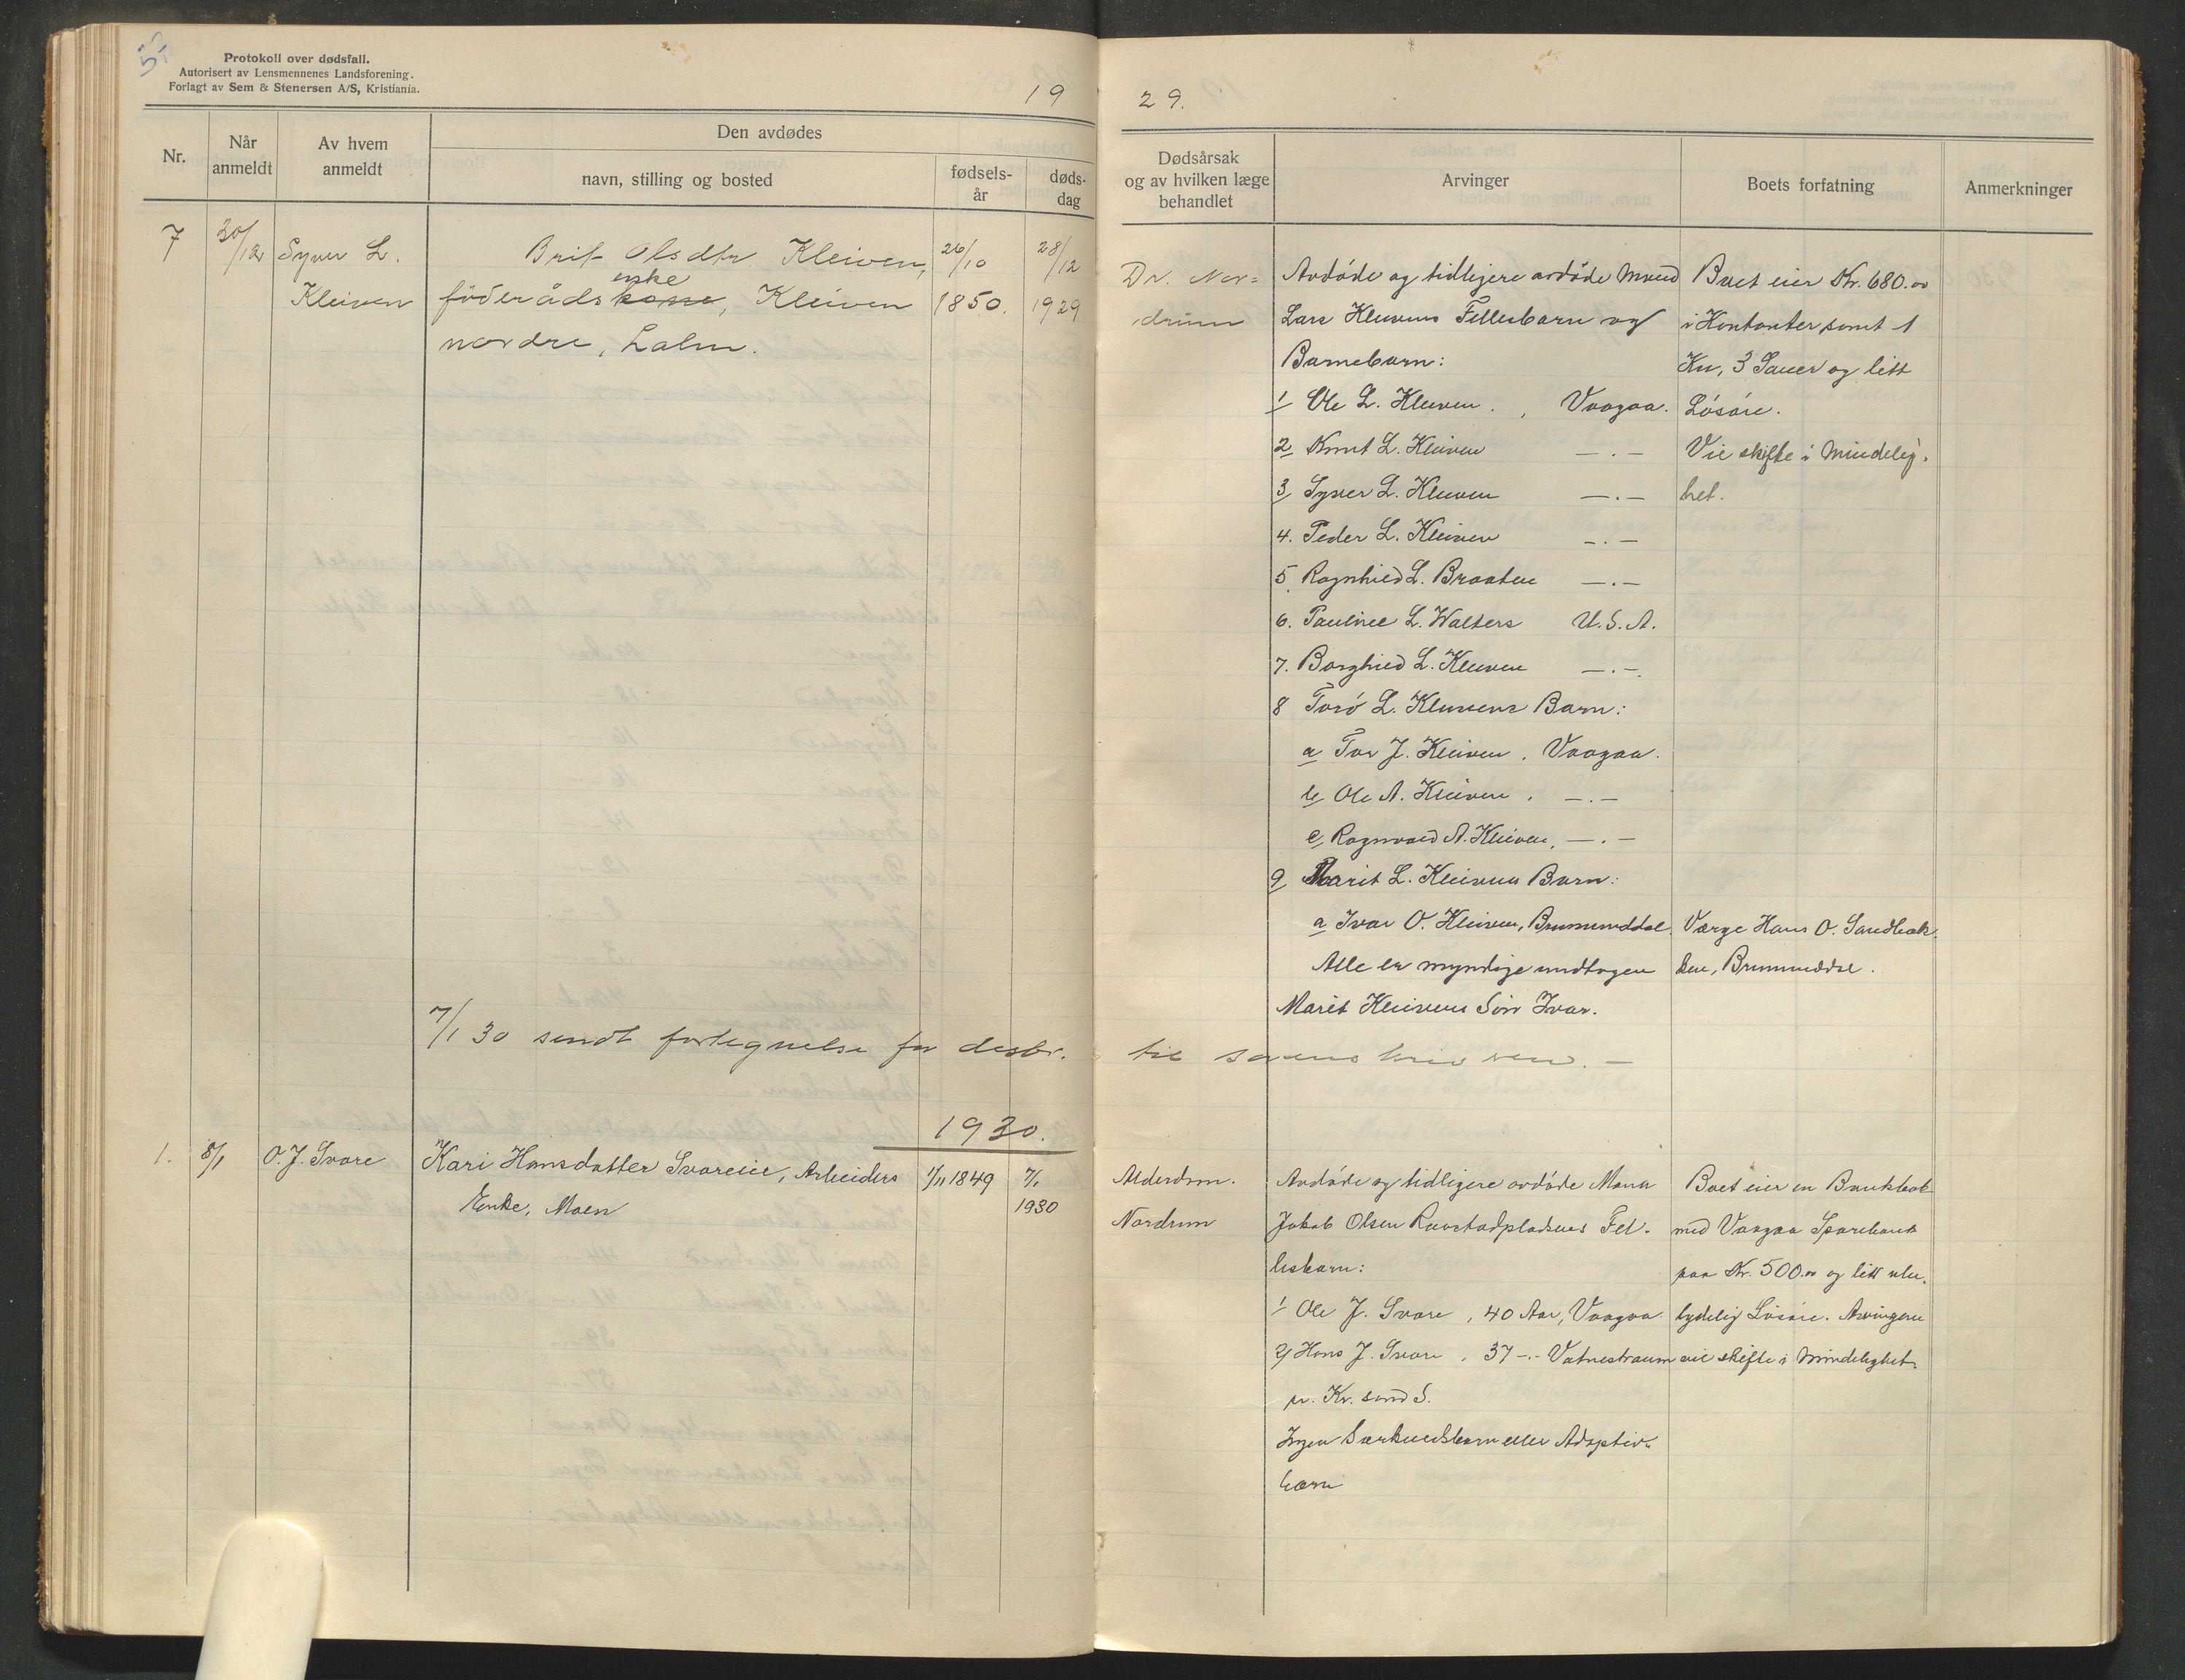 55
Protokoll over dødsfall.
Autorisert av Lensmennenes Landsforening.
Forlagt av Sem & Stenersen A/S, Kristiania.
19
Nr.
Når anmeldt
Av hvem anmeldt
Den avdødes
navn, stilling og bosted
fødsels-år
døds-dag
7
30/12
Syver L.
Kleiven
Brit Olsdtr Kleiven,
enke
föderådskone, Kleiven
nordre, Lalm.
26/10
1850.
28/12
1929
7/1 30 sendt fortegnelse for desbr.
1930.
1.
8/1
O. J. Svare
Kari Hansdatter Svareie, Arbeiders
Enke, Moen
1/11 1849
7/1
1930
29.
Dødsårsak
og av hvilken læge
behandlet
Arvinger
Boets forfatning
Anmerkninger
Dr. Nor=
drum
Avdøde og tidligere avdøde Mand
Lars Kleivens Fellesbarn og
Barnebarn:
1/ Ole L. Kleiven . , Vaagaa.
2 Knut L. Kleiven —.—
3/ Syver L. Kleiven —.—
4. Peder L. Kleiven —.—
5. Ragnhild L. Braaten —.—
6. Pauline L. Walters U.S.A.
7. Borghild L. Kleiven —.—
8 Torö L. Kleivens Barn:
a Tor J. Kleiven . Vaagaa.
b/ Ole A. Kleiven . —.—
c, Ragnvald A. Kleiven, —.—
9/ Marit L. Kleivens Barn:
a Ivar O. Kleiven, Brumunddal.
Alle er myndige undtagen
Marit Kleivens Sön Ivar.
Boet eier Kr. 680.00
i Kontanter samt 1
Ku, 3 Sauer og litt
Lösöre.
Vil skifte i Mindelig-
het.
Værge Hans O. Sandbak-
ken, Brumunddal.
til sorenskriveren. —
Alderdom.
Nordrum
Avdøde og tidligere avdøde Mann
Jakob Olsen Fel-
lesbarn:
1/ Ole J. Svare , 40 Aar, Vaagaa
2/ Hans J. Svare . 37 -.- Vatnestraum
pr. Kr. sand S.
Ingen Særkuldsbarn eller Adoptiv-
barn
Boet eier en Bankbok
med Vaagaa Sparebank
paa Kr. 500.00 og litt ube-
tydelig Lösöre. Arvingene
vil skifte i Mindelighet.